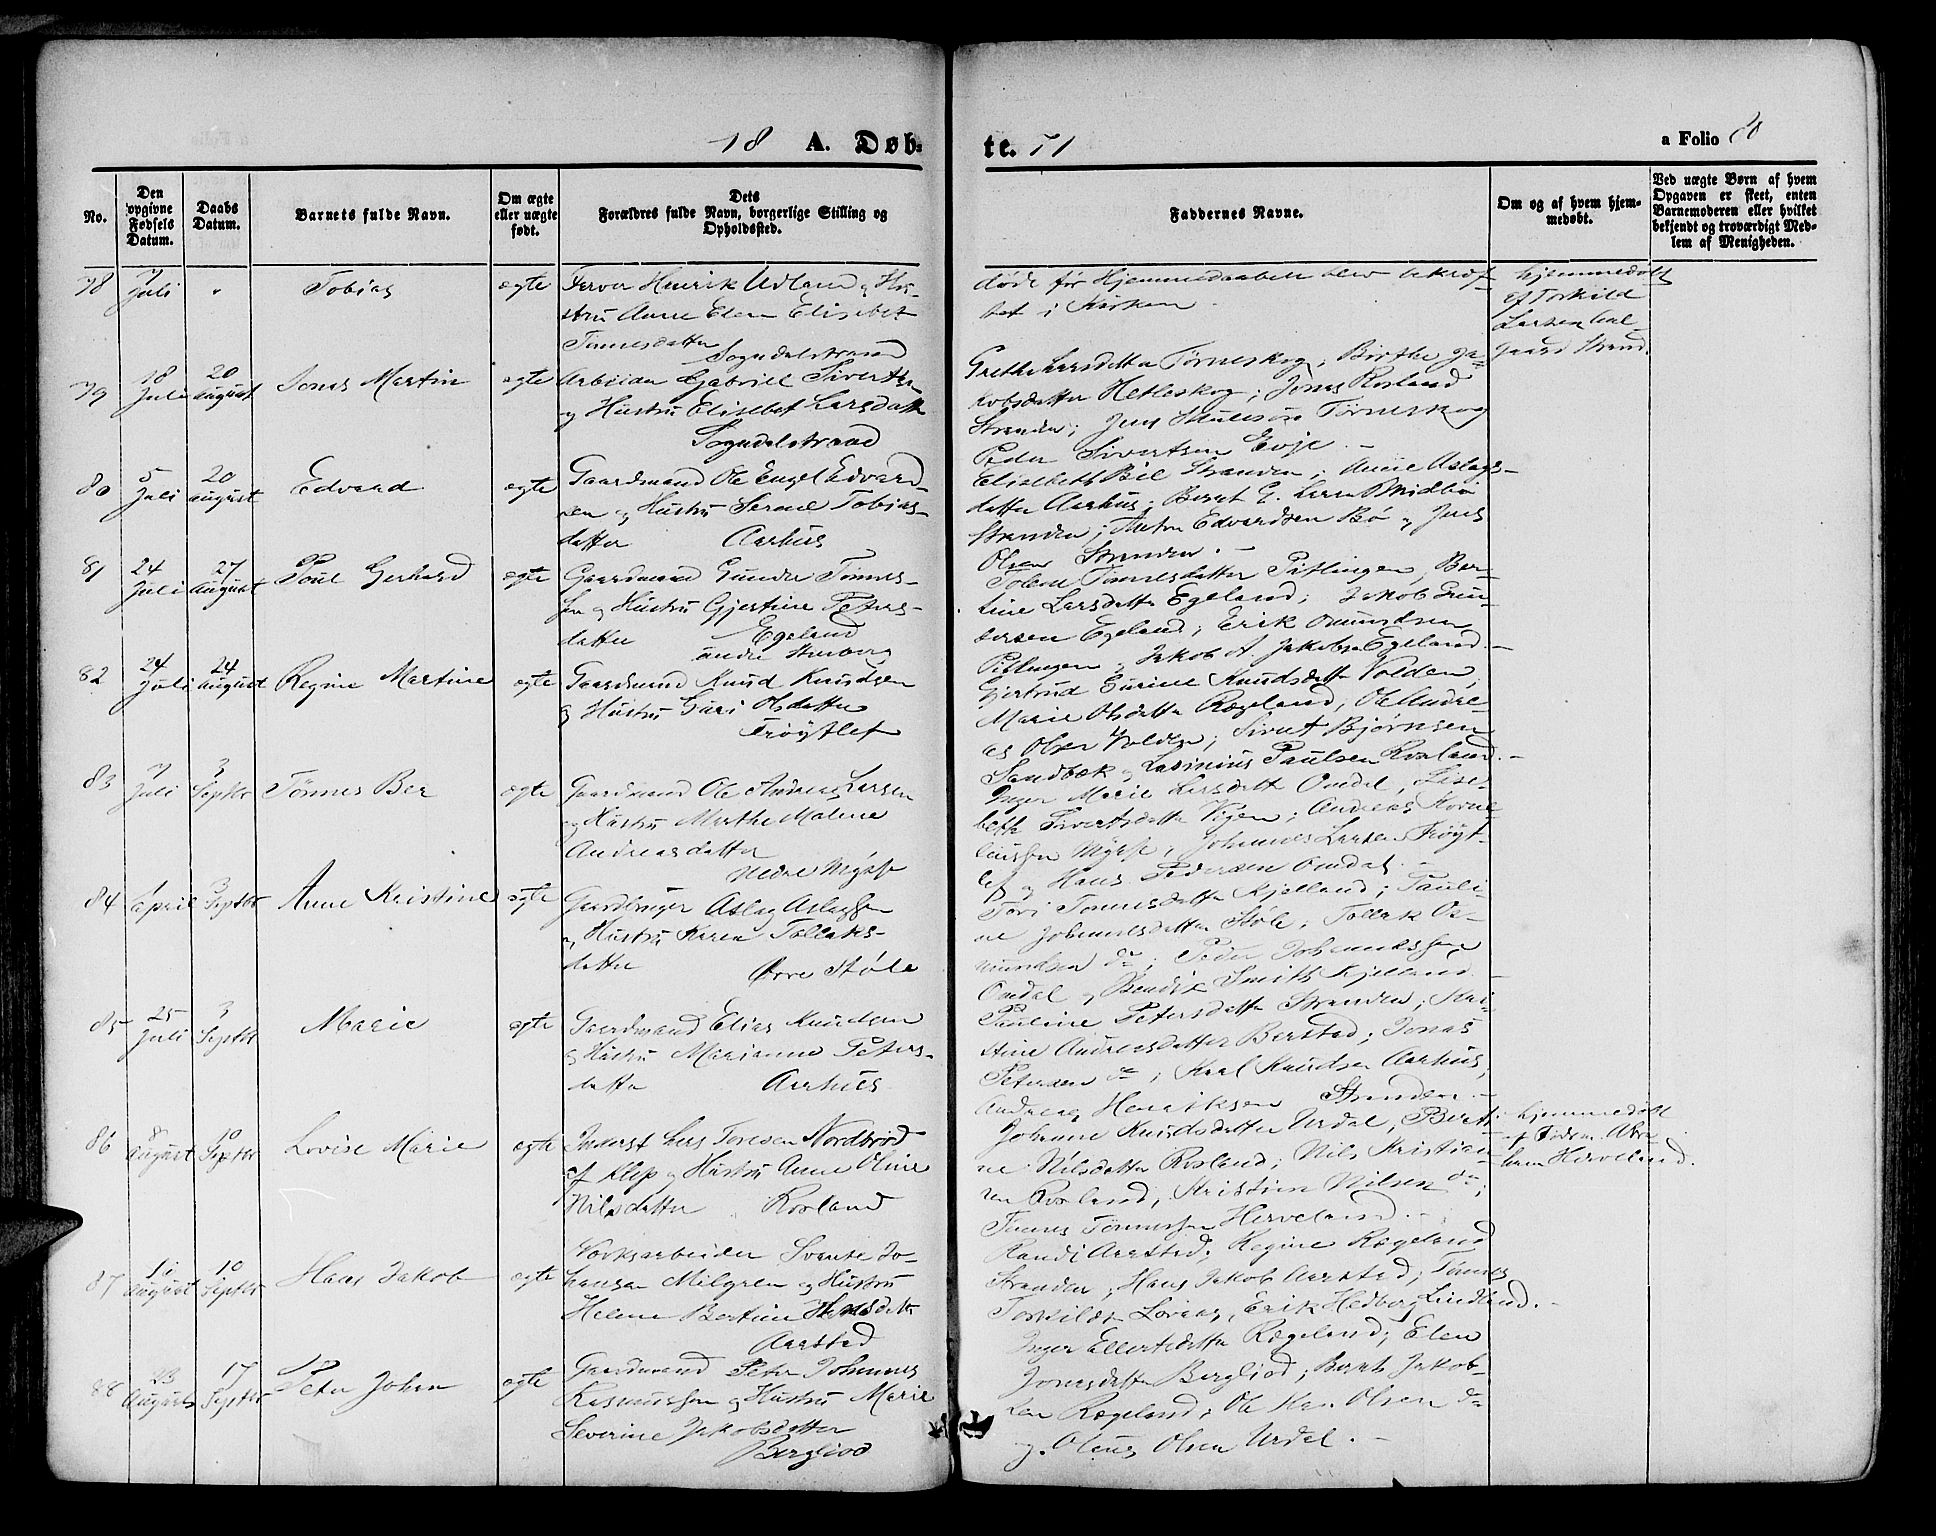 18 A. Døb-
te. 71
a Folio
No.
Den opgivne Fødsels Datum.
Daabs Datum.
Barnets fulde Navn.
Om ægte eller uægte født.
Dets Forældres fulde Navn, borgerlige Stilling og Opholdssted.
Faddernes Navne.
Om og af hvem hjem- medøbt.
Ved uægte Børn af hvem Opgaven er skeet, enten Barnemoderen eller hvilket bekjendt og troværdigt Med- lem af Menigheden.
78
7 Juli
Tobias
ægte
Farver Henrik Udland og Hu-
stru Anne Elen Elisebet
Tønnesdatter
Sogndalstrand
døde før Hjemmedaaben blev bekræf-
tet i Kirken.
hjemmedøbt
af Torkild
Larsen
Strand.
79
18 Juli
20 August
Jonas Martin
ægte
Gabriel Sivertsen
og Hustru Elisebet Larsdatter
Sogndalstrand
Grethe Larsdatter Tørneskog; Birthe Ja-
kobsdatter Hetleskog; Jonas Rosland
Stranden; Tørneskog
Peder Sivertsen Evje. –
80
5 Juli
20 August
Edvard
ægte
Gaardmand Ole Engel Edvard-
sen og Hustru Serine Tobias-
datter Aarhus
Elisebeth Stranden; Anne Aslags-
datter Aarhus;
Stranden; Anton Edvardsen Bø og Jens
Olsen Stranden. –
81
24 Juli
27 August
Poul Gerhard
ægte
Gaardmand Gunder Tønnes-
sen og Hustru Gjertine Peters-
datter Egeland
Tønnesdatter Pitlingen, Ber-
tine Larsdatter Egeland; Jakob Gun-
dersen Egeland; Erik Omundsen
Pitlingen og Jakob A. Jakobsen Egeland. –
82
24 Juli
24 August
Regine Martine
ægte
Gaardmand Knud Knudsen
og Hustru Guri Olsdatter
Frøytlef
Gjertrud Gurine Knudsdatter Volden;
Marie Olsdatter Rægeland; Ole Andre-
as Olsen Volden; Sivert Bjørnsen
Sandbæk og Paulsen Rosland. –
83
7 Juli
3 Septbr
Tønnes Ber
ægte
Gaardmand Ole Andreas Larsen
og Hustru Marthe Malene
Andreasdatter
Nedre Mysse
Inger Marie Larsdatter Omdal, Lise-
beth Sivertsdatter Vigen; Andreas
Mysse, Johannes Larsen Frøyt-
lef og Hans Pedersen Omdal. –
84
April
3 Septbr
Anne Kristine
ægte
Gaardbruger Aslag Aslagsen
og Hustru Karen Tollaks-
datter Øvre Støle
Tori Tønnesdatter Kjelland; Pauli-
ne Johannesdatter Støle; Tollak Os-
mundsen do; Peder Johannessen
Omdal og Bendix Smith Kjelland. –
85
25 Juli
3 Septbr
Marie
ægte
Gaardmand Elias Knudsen
og Hustru Marianne Peters-
datter Aarhus
Pauline Petersdatter Stranden; Kri-
stine Andreasdatter Berstad; Jonas
Petersen do; Karl Knudsen Aarhus;
Andreas Henriksen Stranden. –
86
8 August
10 Septbr
Lovise Marie
ægte
Inderst Lars Toresen Nordbrød
af Klep og Hustru Anne Oline
Nilsdatter Rosland
Johanne Knudsdatter Urdal, Berti-
ne Nilsdatter Rosland; Nils Kristian-
sen Rosland; Kristian Nilsen do;
Tønnes Tønnessen Herveland. –
hjemmedøbt
af Abra-
ham Herveland.
87
August
10 Septbr
Hans Jakob
ægte
Værksarbeider Svante Jo-
hansen Milgren og Hustru
Helene Bertine Hansdatter
Aarstad
Randi Aarstad; Regine Rægeland
Stranden; Hans Jakob Aarstad; Tønnes
Torkildsen; Erik Hedberg Lindland. –
88
23 August
17 Septbr
Peter Johan
ægte
Gaardmand Peter Johannes
Rasmussen og Hustru Marie
Severine Jakobsdatter
Bergliod
Inger Ellertsdatter Rægeland; Elen
Jonasdatter Bergliod; Bernt Jakob-
sen Rægeland; Ole Olsen do
og Olaus Olsen Urdal. –